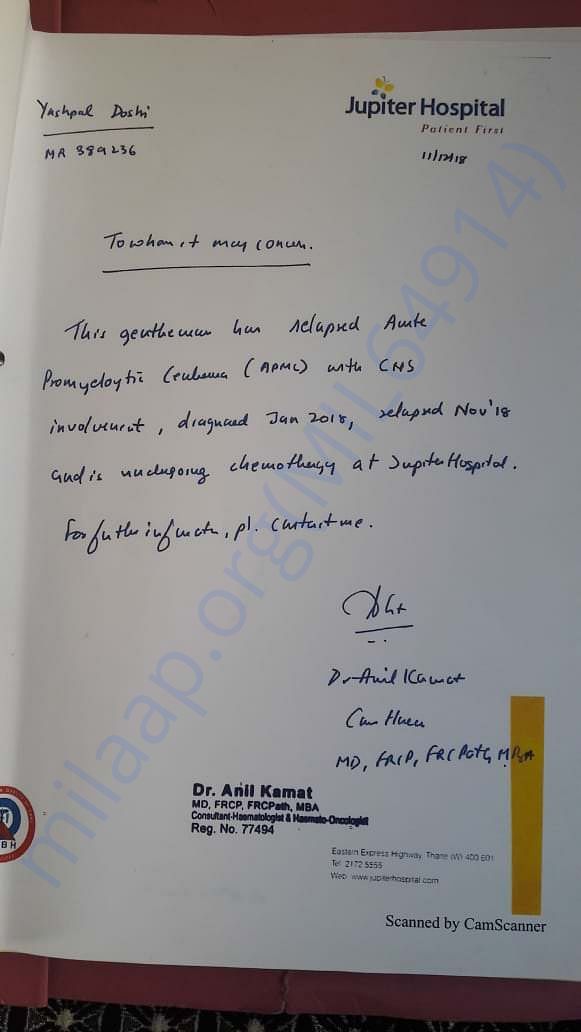 Yashpal Doshi
MR 389236
Jupiter Hospital
Patient First
11/12/18
To whom it may concern.
This gentleman has relapsed Acute
Promyelocytic Leukemia (APML) with CNS
involvement, diagnosed Jan 2018, relapsed Nov'18
and is undergoing chemotherapy at Jupiter Hospital.
For further information, pl. contact me.
Dr Anil Kamat
MD, FRCP, FRCPath, MBA
Dr. Anil Kamat
MD, FRCP, FRCPath, MBA
Consultant-Haematologist & Haemato-Oncologist
Reg. No. 77494
Eastern Express Highway, Thane (W) 400 601
Tel: 2172 5555
Web: www.jupiterhospital.com
BH
Scanned by CamScanner
milaap.org(MIL64914)